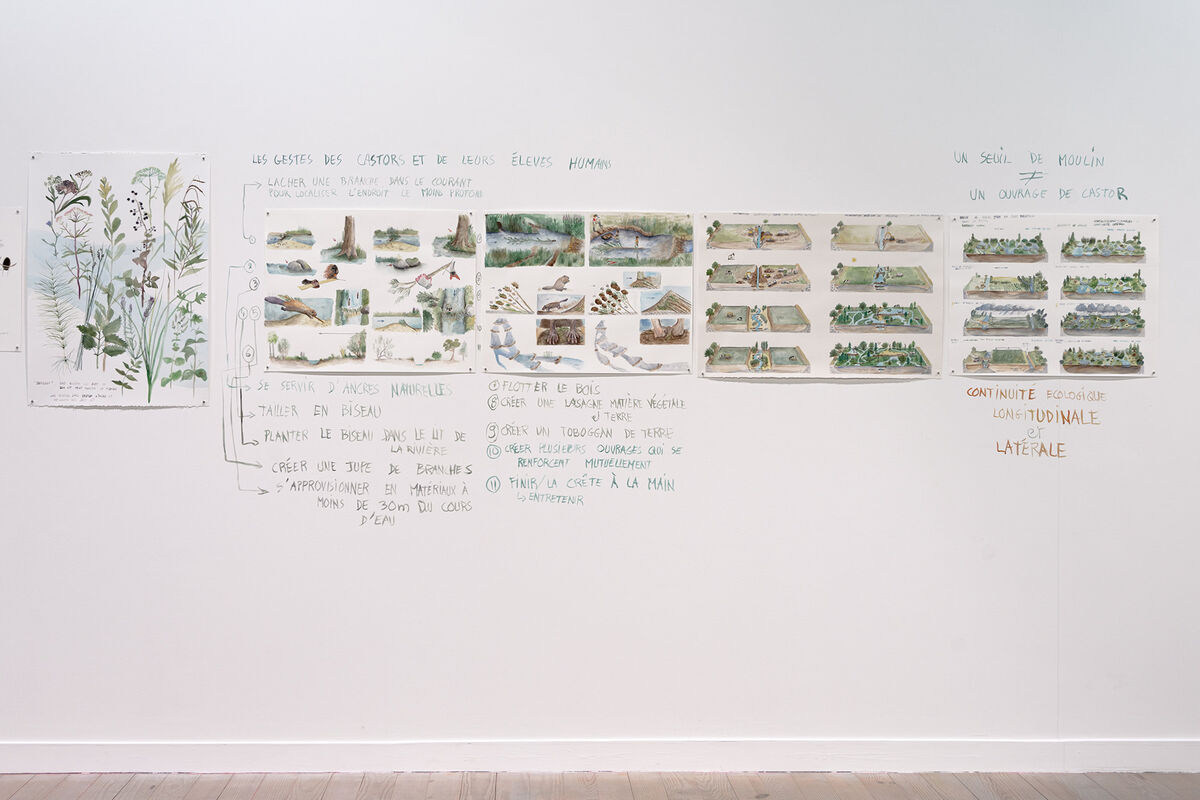 LES GESTES DES CASTORS ET DE LEURS ÉLEVES HUMAINS
LACHER UNE BRANCHE DANS LE COURANT
POUR LOCALISER L'ENDROIT LE MOINS PROFOND
SE SERVIR D'ANCRES NATURELLES
TAILLER EN BISEAU
PLANTER LE BISEAU DANS LE LIT DE
LA RIVIÈRE
CRÉER UNE JUPE DE BRANCHES
S'APPROVISIONNER EN MATÉRIAUX À
MOINS DE 30m DU COURS
D'EAU
FLOTTER LE BOIS
CRÉER UNE LASAGNE MATIÈRE VÉGÉTALE
ET TERRE
⑨ CRÉER UN TOBOGGAN DE TERRE
⑩ CRÉER PLUSIEURS OUVRAGES QUI SE
RENFORCENT MUTUELLEMENT
⑪ FINIR/LA CRÊTE À LA MAIN
↳ ENTRETENIR
UN SEUIL DE MOULIN
≠
UN OUVRAGE DE CASTOR
CONTINUITÉ ECOLOGIQUE
LONGITUDINALE
et
LATÉRALE